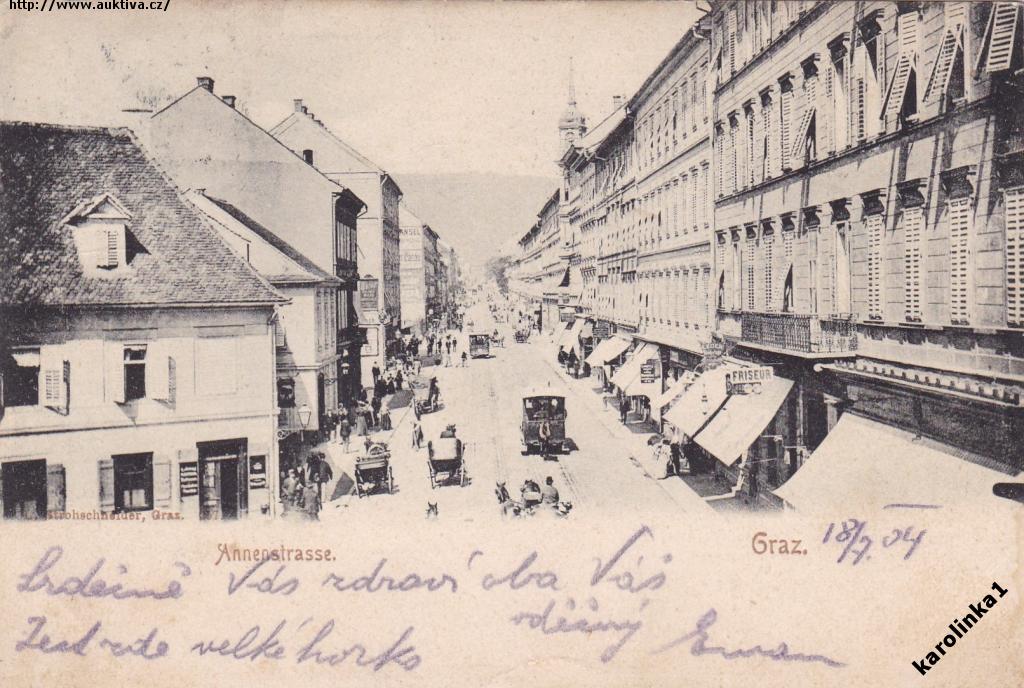 http://www.auktiva.cz/
ANSEL
FRISEUR
Strohschneider, Graz.
Annenstrasse.
Graz.
18/7. 04
Srdečně Vás zdraví oba Vás
vděčný
velké horko
karolinka1